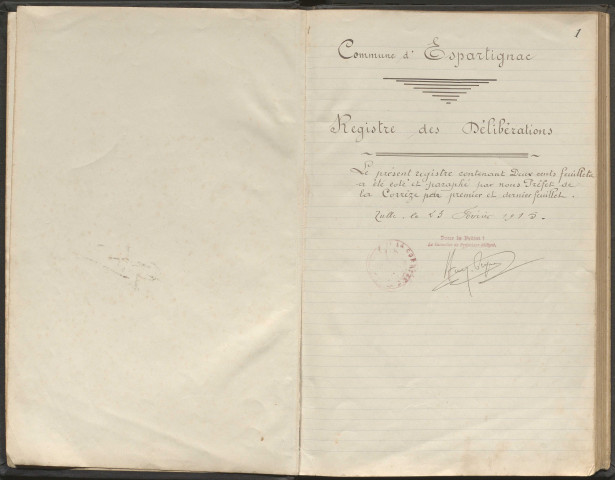 1
Commune d' Espartignac
Registre des Délibérations
Le présent registre contenant Deux cents feuillets
a été coté et paraphé par nous Préfet de
la Corrèze par premier et dernier feuillet.
Tulle, le 23
Pour le Préfet :